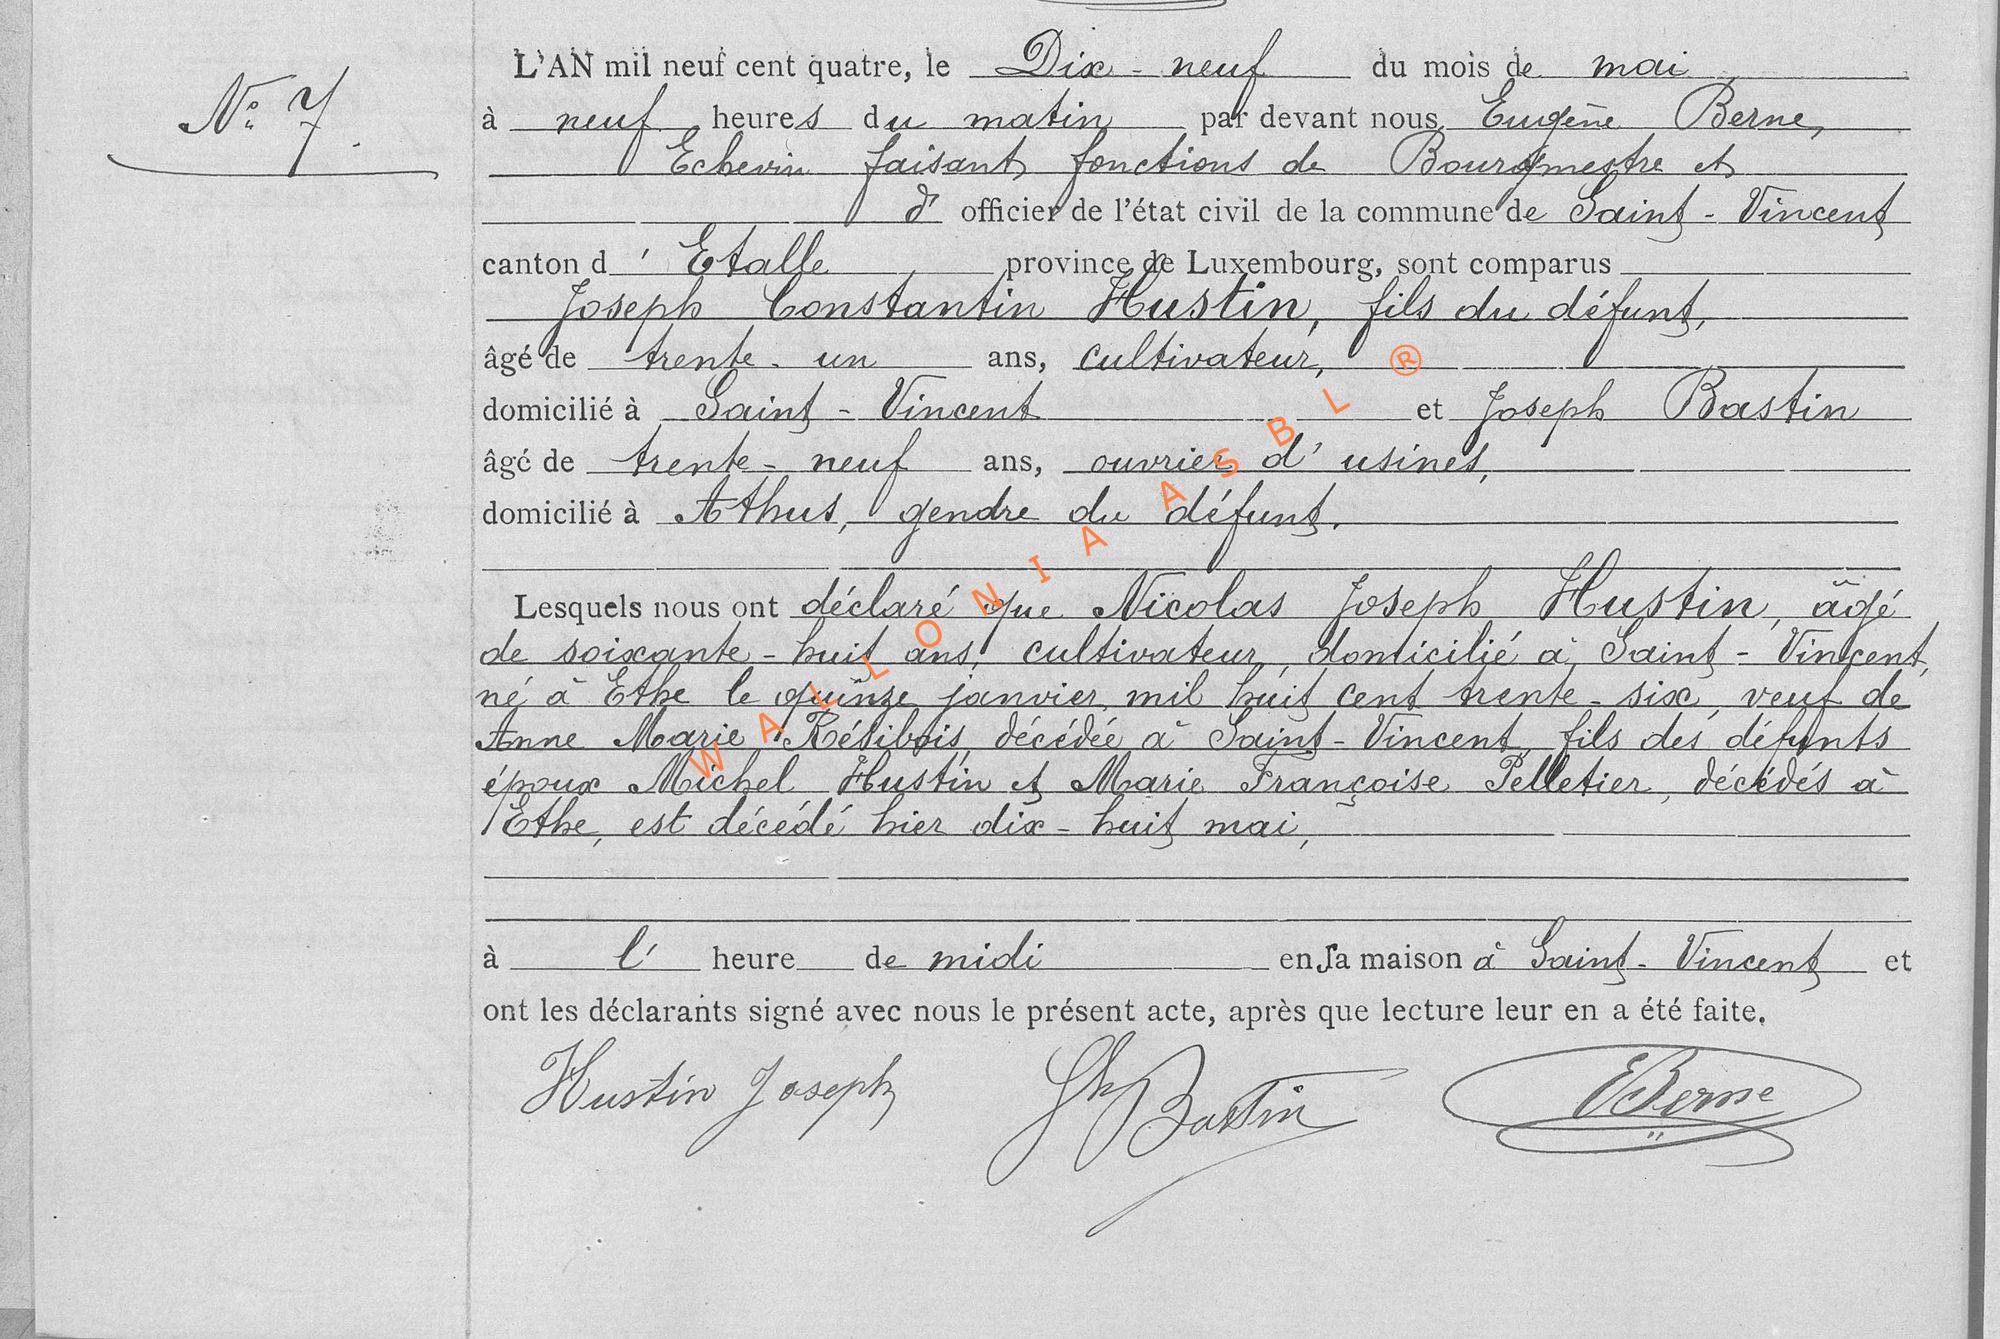 N° 7.
L'AN mil neuf cent quatre, le Dix-neuf du mois de mai
à neuf heures du matin par devant nous Eugène Berne,
Echevin faisant fonctions de Bourgmestre et
d' officier de l'état civil de la commune de Saint-Vincent
canton d' Etalle, province de Luxembourg, sont comparus
Joseph Constantin Hustin, fils du défunt,
âgé de trente-un ans, cultivateur,
domicilié à Saint-Vincent et Joseph Bastin
âgé de trente-neuf ans, ouvrier d'usines,
domicilié à Athus, gendre du défunt.
Lesquels nous ont déclaré que Nicolas Joseph Hustin, âgé
de soixante-huit ans, cultivateur, domicilié à Saint-Vincent,
né à Ethe le quinze janvier mil huit cent trente-six, veuf de
Anne Marie Rétibois, décédée à Saint-Vincent, fils des défunts
époux Michel Hustin et Marie Françoise Pelletier, décédés à
Ethe, est décédé hier dix-huit mai,
à l' heure de midi en sa maison à Saint-Vincent et
ont les déclarants signé avec nous le présent acte, après que lecture leur en a été faite.
Hustin Joseph Bastin EBerne
WALLONIA ASBL ®